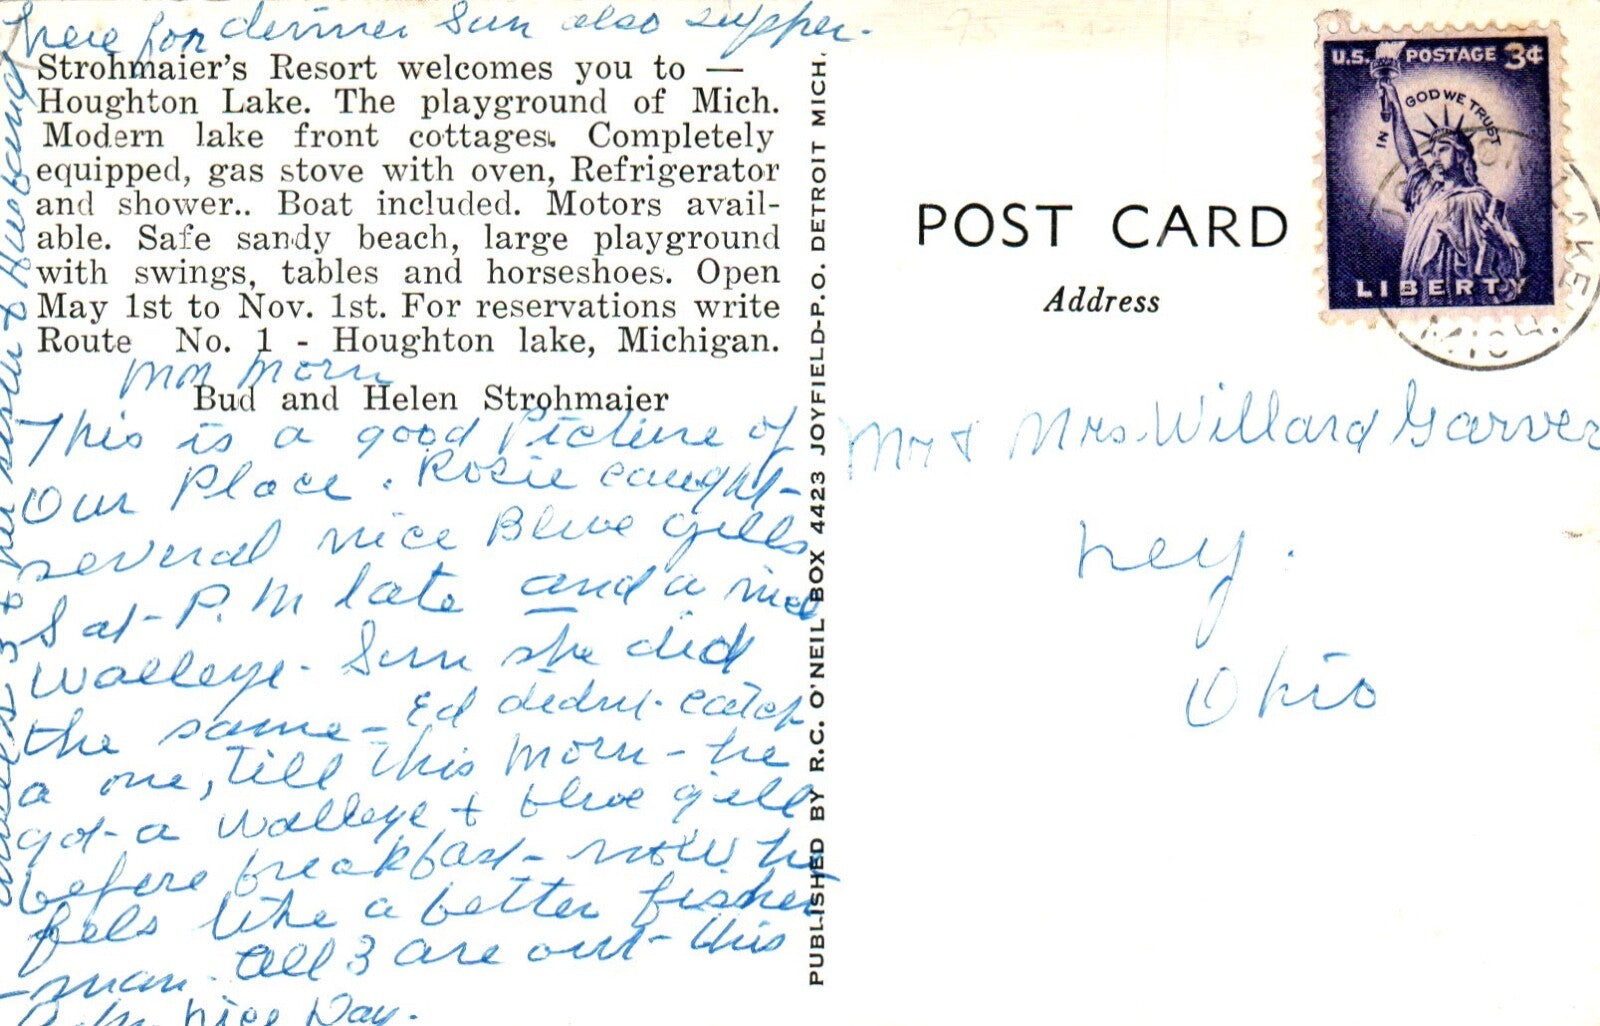 here for dinner Sun also supper.
Strohmaier's Resort welcomes you to —
Houghton Lake. The playground of Mich.
Modern lake front cottages. Completely
equipped, gas stove with oven, Refrigerator
and shower.. Boat included. Motors avail-
able. Safe sandy beach, large playground
with swings, tables and horseshoes. Open
May 1st to Nov. 1st. For reservations write
Route No. 1 - Houghton lake, Michigan.
Mon Morn
Bud and Helen Strohmaier
This is a good Picture of
Our Place. Rosie caught
several nice Blue gills
Sat- P.M late and a nice
walleye- Sun she did
the same- Ed didn't catch
a one, Till This Morn- he
got a walleye & blue gill
before breakfast- now he
feels like a better fisher
-man. All 3 are out- this
nice Day.
3 & her sister & Husband
PUBLISHED BY R.C. O'NEIL BOX 4423 JOYFIELD-P.O. DETROIT MICH.
POST CARD
Address
U.S. POSTAGE 3¢
IN GOD WE TRUST
LIBERTY
LAKE
MICH.
Mr & Mrs. Willard Garver
Ney.
Ohio